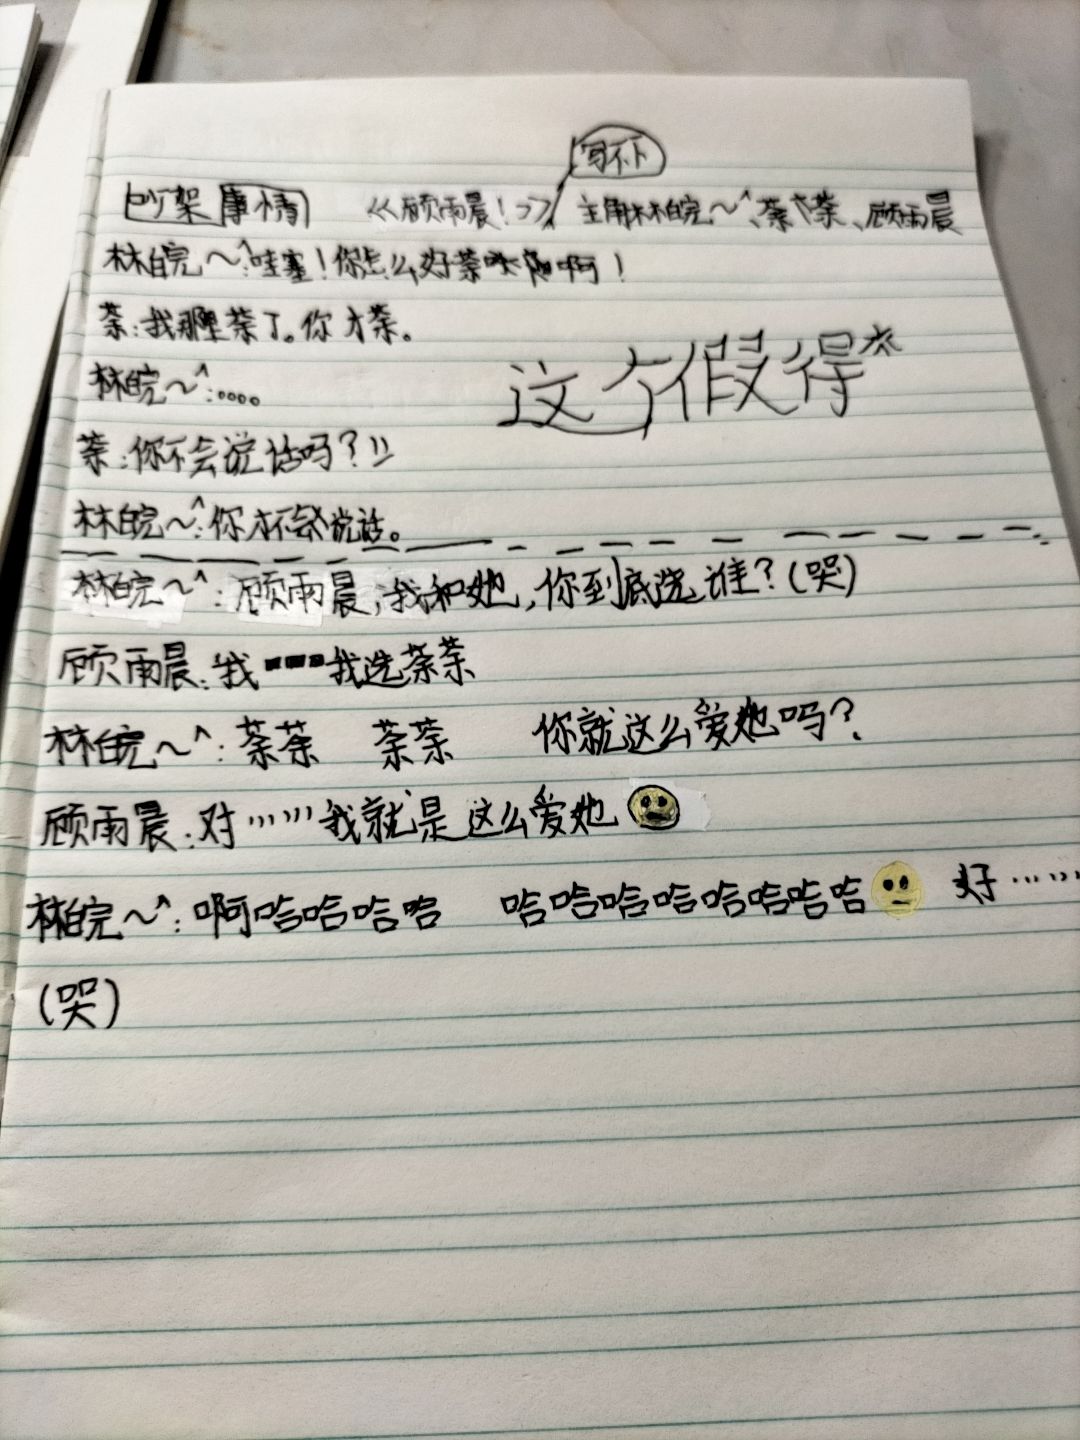 写不下
吵架事情 《《顾雨晨！》》 主角林皖～^、荼荼、顾雨晨
林皖～^：哇塞！你怎么好荼 啊！
荼：我那里荼了。你才荼。
林皖～^：....
这个假得
荼：你不会说话吗？!!
林皖～^：你才不会说话。
林皖～^：顾雨晨，我和她，你到底选谁？(哭)
顾雨晨：我····我选荼荼
林皖～^：荼荼 荼荼 你就这么爱她吗？
顾雨晨：对……我就是这么爱她
林皖～^：啊哈哈哈哈 哈哈哈哈哈哈哈哈 好……
(哭)